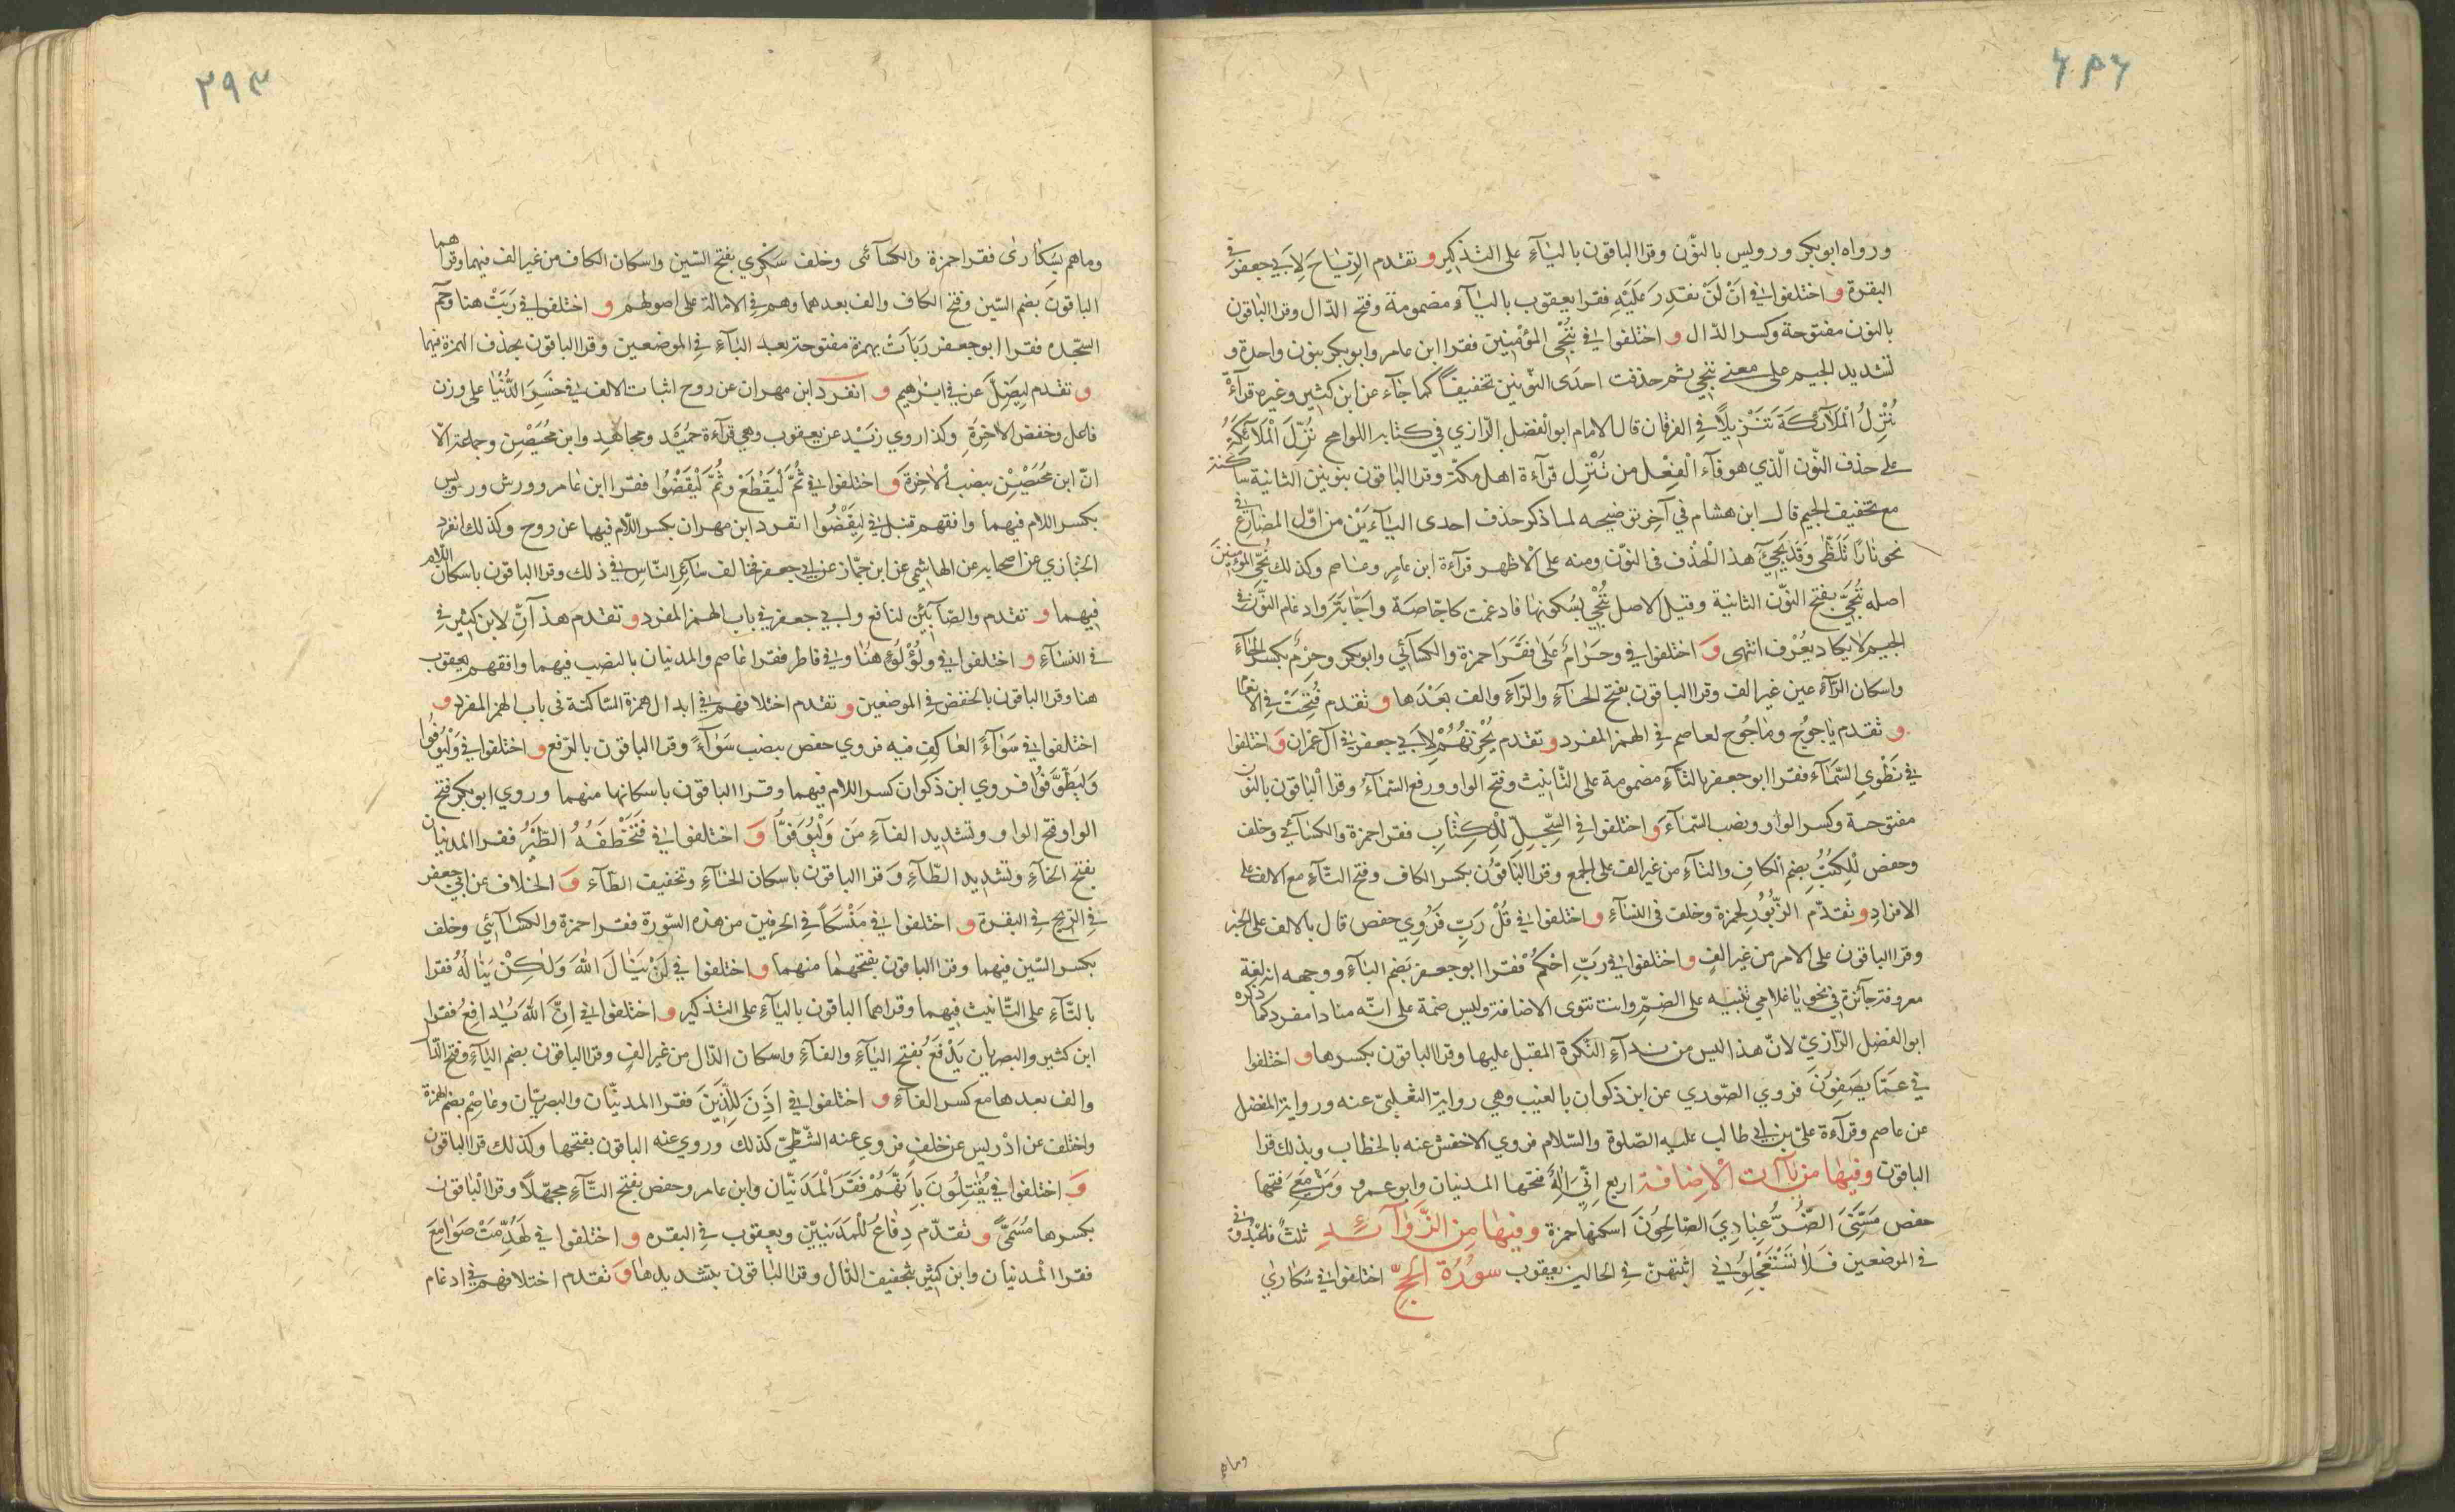 ٢٩٢
ورواه ابوبكر ورويس بالنّون وقرا الباقون بالياۤءِ على التذكير و تقدم الرِّيٰاحَ لِاَبي جعفر في
البقرة و اختلفوا في اَنْ لَنْ نقدِرَ عَلَيْهِ فقرا يعقوب بالياۤءِ مضمومة وفتح الدّال وقرا الباقون
بالنون مفتوحة وكسر الدّال و اختلفوا في نُنْجِي المؤمنِينَ فقرا ابن عامر وابوبكر بنون واحدة و
تشديد الجيم على معنى ننجي ثم حذفت احدَى النّونين تخفيفاً كما جاۤء عن ابن كثير وغيره قرآءة
نُنْزِلُ الْمَلآئكَةَ تَنْزِيلاً في الفرقان قال الامام ابوالفضل الرّازي في كتابه اللوامح نُزِّلَ الْمَلآئكَةُ
على حذف النّون الّذي هو فآء الْفِعْل من نُنْزِل قرآءة اهل مكة وقرا الباقون بنونين الثانية ساكنة
مع تخفيف الجيم قال ابن هشام في آخِر توضيحه لما ذكر حذف احدى التاۤءَيْن من اوّل المضارِع في
نحو نٰارًا تَلَظّٰى وَقَد يَجيۤئُ هذ الْحذف فى النّون ومنه على الْاظهر قرآءة ابن عٰامِر وعٰاصم وكذلك نُجِّي المؤمنينَ
اصله نُنَجِّي بفتح النّون الثانية وقيل الاصل نُنْجِي بسُكونها فادغمت كاجّاصة واَجّانة واِدغام النّون في
الجيم لا يكاد يعْرف انتهى وَ اختلفوا في وحَرٰامٌ عَلٰى فقَرَا حمزة والكسآئي وابوبكر وحِرْمٌ بكسر الحٰآءِ
واسكان الرّآءِ من غير الف وقرا الباقون بفتح الحٰآءِ والرّآءِ والف بعْدَها و تقدم فُتِحَتْ في الانعٰام
و تقدم يٰاجوج ومٰاجُوج لعاصم في الهمز المفرد و تقدم يُحْزِنُهُمْ لِاَبي جعفر في آل عمران وَ اختلفوا
في نَطْوِي السَّمٰآءَ فقرا ابوجعفر بالتآءِ مضمومة على التّانيث وفتح الواو ورفع السّمآءُ وقرا الْباقون بالنّون
مفتوحة وكسر الواو ونصب السّمآءَ وَ اختلفوا في السِّجِلِّ لِلْكِتٰابِ فقرا حمزة والكسآئي وخلف
وحفص لِلْكُتُبِ بضم الكافِ والتآءِ من غير الف على الجمع وقرا البٰاقُون بكسر الكاف وفتح التّآءِ مع الالف على
الافرٰادِ و تقدّم الزّبُور لحمزة وخلف فى النّسٰآءِ و اختلفوا في قُلْ رَبِّ فَرُوِي حفص قال بالالف على الخبر
وقرا الباقون على الامر من غير الفٍ و اختلفوا في رَبِّ احْكُمْ فقرا ابوجعفر بَضم البٰآءِ ووجهه انه لغة
معروفة جآئزة في نحو يٰاغلامي تنبيه على الضمّ وانت تنوى الاضافة وليس ضمة على انّه منادا مفرد كما ذكره
ابوالفضل الرّازيّ لانّ هذا ليس من ندآءِ النّكرة المقبل عليها وقرا الباقون بكسرها و اختلفوا
في عَمّا يَصَفِونَ فروي الصّوري عن ابن ذكوان بالغيب وهي رواية التغلبيّ عنه ورواية المفضل
عن عاصم وقرآءة عليّ بن ابي طالب عليه الصّلوة والسّلام فروي الاخفش عنه بالخطاب وبذلك قرا
الباقون وفيهٰا من يٰآات الْاِضافة اربع اِنّي اِلٰهٌ فتحها المدنيان وابوعمرو وَمَنْ مَعِيَ فتحها
حفص مَسَّنِيَ الضُّرُّ عِبٰادِيَ الصّالِحُونَ اسكنها حمزة وفيهٰا مِن الزَّوٰآئِدِ ثلثٌ فاعْبُدُونِ في
في الموضعين فَلاٰ تَسْتَعْجِلُونِ اثبتهنّ في الحالين يعقوب سورُةُ الحجِّ اختلفوا في سُكارٰي
وماهم
٢٩٣
وماهم بِسُكٰارىٰ فقرا حمزة والكسآئى وخلف سَكْرٰي بفتح السّين واسكان الكاف من غير الف فيهما وقراهما
الباقونَ بضم السّين وفتح الكاف والف بعدهما وهم في الامالة على اصولهم و اختلفوا في رَبَتْ هنا وحٰم
السّجده فقرا ابوجعفر رَبَاَتْ بهمزة مفتوحة بعد البٰآءِ في الموضعين وقرا الباقون بحذف الهمزة فيهما
و تقدم لِيَضِلَّ عَن في ابرٰهيم و انفرد ابن مهران عن روح اثبات الالف في خَسِرَ الدُّنْيٰا على وزن
فاعل وخفض الاخِرَةِ وكذا روي زيْد عن يعقوب وهي قرآءة حُمَيْد ومجاهِد وابن مُحَيْصِن وجماعة الّا
انّ ابن مُحَيْصِن بنصب الْاٰخِرَة وَ اختلفوا في ثُمَّ لْيَقْطَعْ وثُمَّ لْيَقْضُوا فقرا ابن عٰامر وورش ورويس
بكسر اللام فيهما وافقهم قنبل في لِيَقْضُوا انفرد ابن مهران بكسر اللّام فيهما عن روح وكذلك انفرد
الخبازي عن اصحابه عن الهاشمي عن ابن جمّاز عن ابي جعفر فخالف سٰآئر النّاس في ذلك وقرا الباقون باسكان اللّام
فيهما و تقدم والصّابئين لنافع وابي جعفر في باب الهمز المفرد و تقدم هذآنِّ لابن كثير في
في النسٰآءِ و اختلفوا في ولُؤْلُؤًا هنٰا وفي فاطر فقرا عٰاصم والمدنيان بالنصب فيهما وافقهم يعقوب
هنا وقرا الباقون بالخفض في الموضعين و تقدم اختلافهم في ابدال همزة السّاكنة فى باب الهمز المفرد و
اختلفوا في سَوٰآءً العٰاكِفِ فيه فروي حفص بنصب سَوٰآءً وقرا الباقون بالرّفع و اختلفوا في وَلْيُوفُوا
وَليَطَّوَّفوُا فروي ابن ذكوان كسر اللام فيهما وقرا الباقون باسكانها منهما وروي ابوبكر فتح
الواو فتح الواو وتشديد الفآءِ مَن وَلْيُوَفوّا وَ اختلفوا في فَتَخْطَفُهُ الطَيْرُ فقرا المدنيان
بفتح الخآءِ وتشديد الطّآءِ وَقرا الباقون باسكان الخٰآءِ وتخفيف الطآء وَ الخلاف عن ابي جعفر
في الرّيح في البقرة و اختلفوا في مَنْسَكاً في الحرفين من هذه السّورة فقرا حمزة والكسٰآئي وخلف
بكسر السّين فيهما وقرا الباقون بفتحهمٰا منهما و اختلفوا في لَنْ يَنٰالَ اللهَ وَلٰكِنْ يَنٰالُهُ فقرا
بالتّآءِ على التّانيث فيهما وقراهما الباقون بالياۤءِ على التذكير و اختلفوا في اِنَّ اللهَ يُدٰافِعُ فقرا
ابن كثير والبصريان يَدْفَعُ بفتح اليٰآءِ والفآءِ واسكان الدّال من غير الفٍ وقرا الباقون بضم اليٰآءِ وفتح الدّال
والف بعدها مع كسر الفآءِ و اختلفوا في اذِنَ لِلّذِينَ فقرا المدنيّان والبصريّان وعٰاصِم بضم الهمزة
واختلف عن ادْريس عن خلفٍ فروي عنه الشّطّيّ كذلك وروي عنه الباقون بفتحها وكذلك قرا الباقون
وَ اختلفوا في يُقٰتِلُونَ بِاَنَّهُمْ فقَرَا الْمَدَنيّان وابن عامر وحفص بفتح التّآءِ مجهّلًا وقرا الْباقون
بكسرها مُسَمًّى و تقدّم دِفٰاعُ للْمَدَنيِيّن ويعقوب في البقره و اختلفوا في لَهُدِّمَتْ صَوٰامِعَ
فقرا الْمدنيان وابن كثير بتخفيف الدّال وقرا البٰاقون بتشديدهٰا وَ تقدم اختلافهم في ادغام